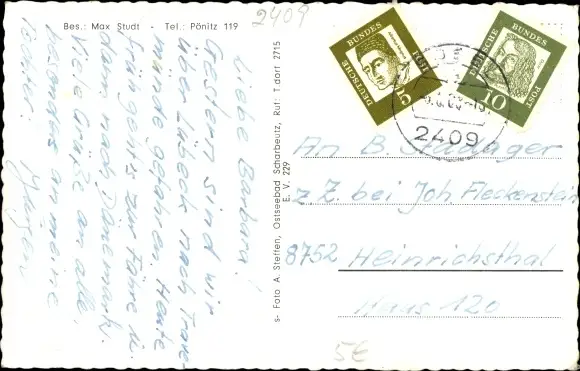 Bes.: Max Studt - Tel.: Pönitz 119
2409
DEUTSCHE BUNDES POST
5
DEUTSCHE BUNDES POST
10
2409
Liebe Barbara!
Gestern sind wir
über Lübeck nach Trave-
münde gefahren. Heute
früh gehts zur Fähre u.
dann nach Dänemark.
Viele Grüße an alle,
besonders an meine
Jürgen
s- Foto A. Steffen, Ostseebad Scharbeutz, Ruf: T.dorf 2715
E. V. 229
An B. Stadager
z. Z. bei Joh. Fleckenstein
8752 Heinrichsthal
Haus 120
5€